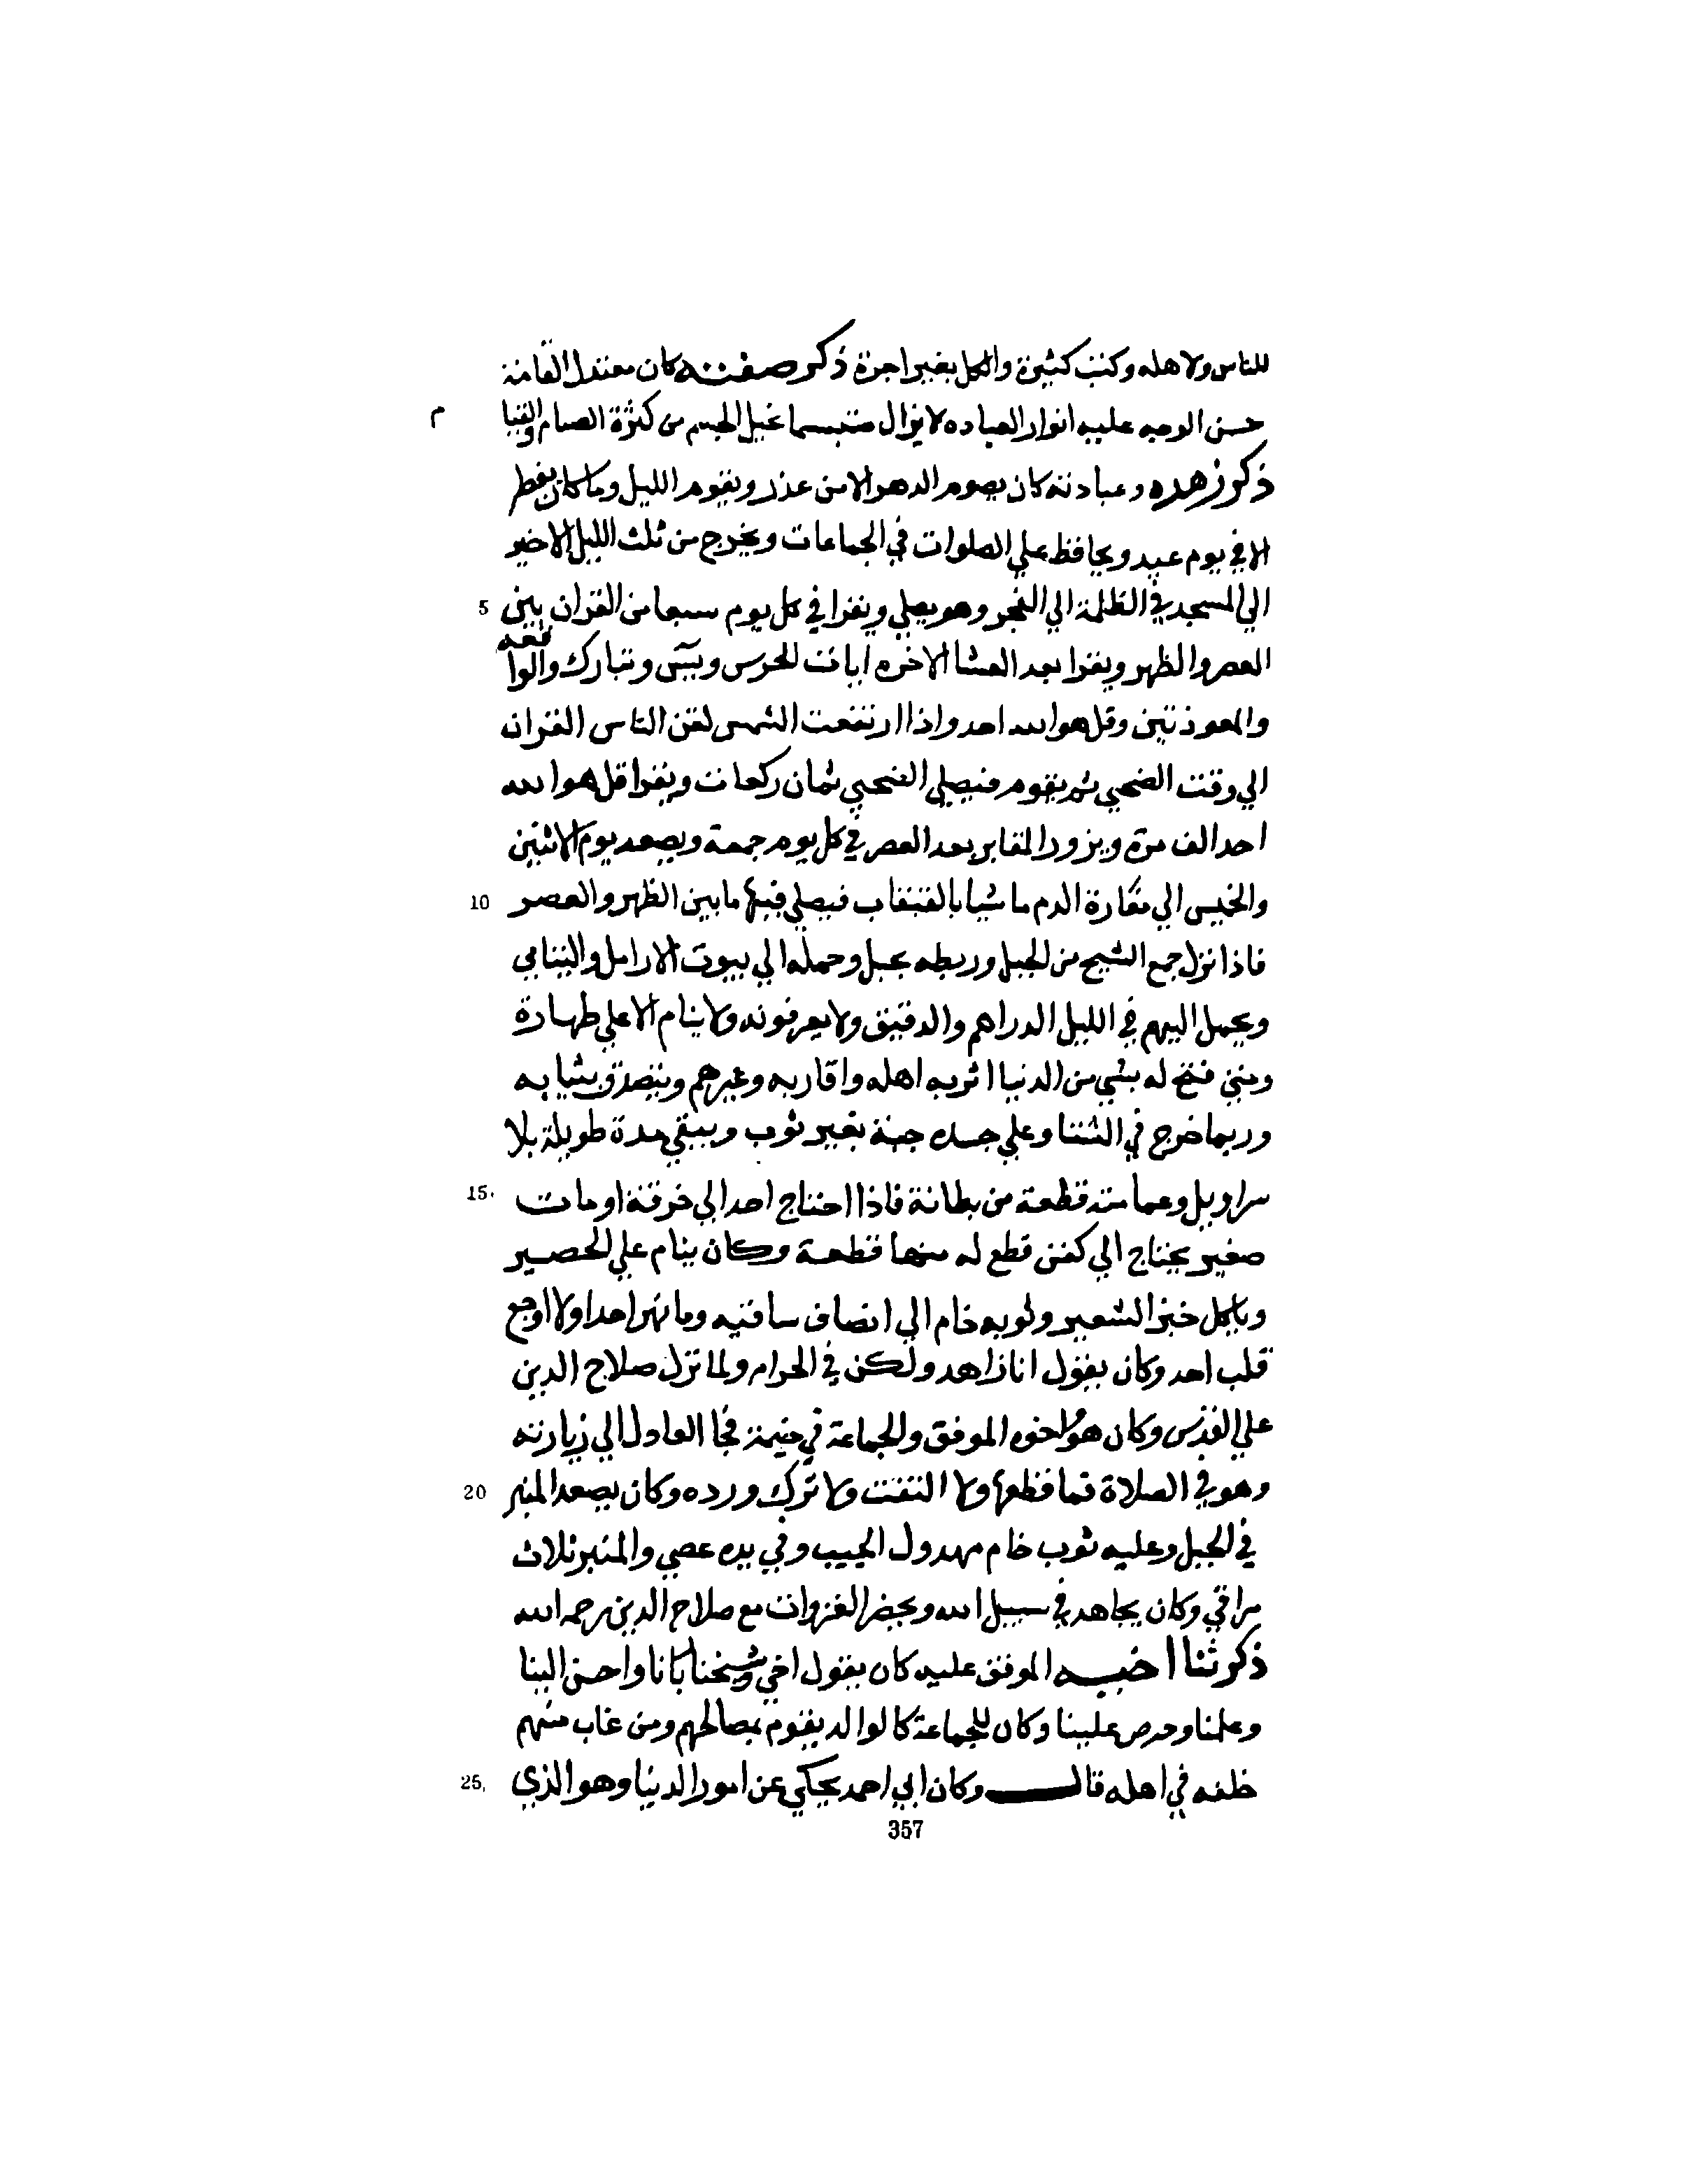 للناس ولاهله وكتب كثيرة والكل بغير اجرة ذكر صفته كان معتدل القامة
حسن الوجه عليه انوار العباده لا يزال متبسما نحيل الجسم من كثرة الصيام والقيام
ذكر زهده وعبادته كان يصوم الدهر الا من عذر ويقوم الليل وما كان يفطر
الا في يوم عيد ويحافظ علي الصلوات في الجماعات ويخرج من ثلث الليل الاخير
5 الي المسجد في الظلمة الي الفجر وهو يصلي ويقرا في كل يوم سبعا من القران بين
العصر والظهر ويقرا بعد العشا الاخره ايات الحرس ويس وتبارك والواقعه
والمعوذتين وقل هو الله احد واذا ارتفعت الشمس لقن الناس القران
الي وقت الضحي ثم يقوم فيصلي الضحي ثمان ركعات ويقرا قل هو الله
احد الف مرة ويزور المقابر بعد العصر في كل يوم جمعة ويصعد يوم الاثنين
10 والخميس الي مغارة الدم ماشيا بالقبقاب فيصلي فيها ما بين الظهر والعصر
فاذا نزل جمع الشيح من الجبل وربطه بحبل وحمله الي بيوت الارامل واليتامي
ويحمل اليهم في الليل الدراهم والدقيق ولا يعرفونه ولا ينام الا علي طهارة
ومتي فتح له بشي من الدنيا اثر به اهله واقاربه وغيرهم ويتصدق بثيابه
وربما خرج في الشتا وعلي جسده جبة بغير ثوب ويبقي مدة طويلة بلا
15 سراويل وعمامته قطعة من بطانة فاذا احتاج احد الي خرقة او مات
صغير يحتاج الي كفن قطع له منها قطعة وكان ينام علي الحصير
وياكل خبز الشعير وثوبه خام الي انصاف ساقيه وما نهر احدا ولا اوجع
قلب احد وكان يقول انا زاهد ولكن في الحرام ولما نزل صلاح الدين
علي القدس وكان هو واخوه الموفق والجماعة في خيمة فجا العادل الي زيارته
20 وهو في الصلاة فما قطعها ولا التفت ولا ترك ورده وكان يصعد المنبر
في الجبل وعليه ثوب خام مهدول الجيب وفي يده عصي والمنبر ثلاث
مراقي وكان يجاهد في سبيل الله ويحضر الغزوات مع صلاح الدين رحمه الله
ذكر ثنا اخيه الموفق عليه كان يقول اخي وشيخنا ربانا واحسن الينا
وعلمنا وحرص علينا وكان للجماعة كالوالد يقوم بمصالحهم ومن غاب منهم
25 خلفه في اهله قال وكان ابي احمد يحكي عن امور الدنيا وهو الذي
357